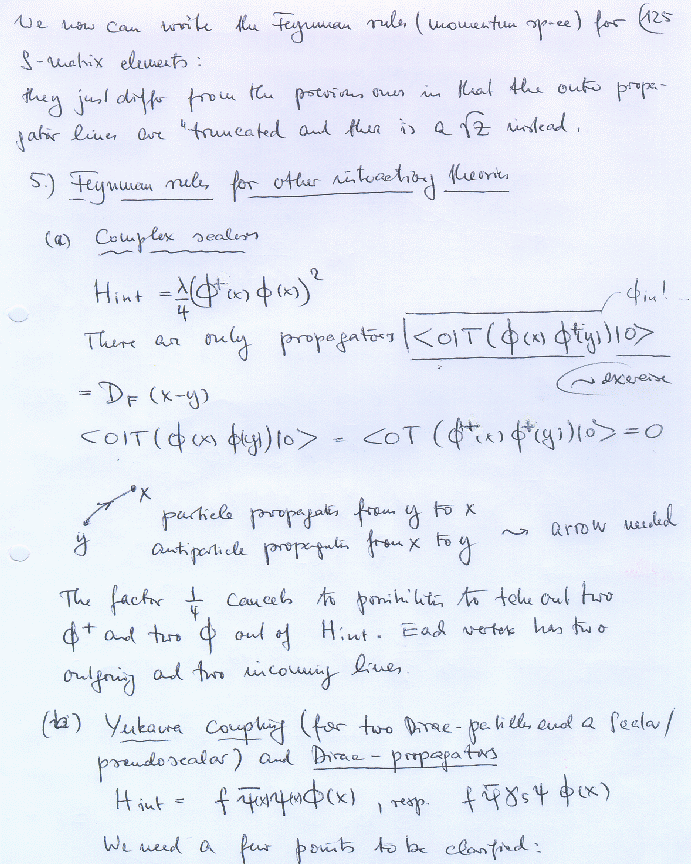 We now can write the Feynman rules (momentum space) for (125
S-matrix elements:
they just differ from the previous ones in that the outer propa-
gator lines are "truncated and ther is a √Z instead.
5.) Feynman rules for other interacting theories
(a) Complex scalars
Hint = λ/4 (ϕ⁺(x) ϕ(x))²
ϕin!
There are only propagators <0|T(ϕ(x) ϕ⁺(y))|0>
~ exercise
= D_F (x-y)
<0|T(ϕ(x) ϕ(y))|0> = <0T (ϕ⁺(x) ϕ⁺(y))|0> = 0
x
y
particle propagates from y to x
antiparticle propagates from x to y
~ arrow needed
The factor 1/4 cancels to possibilities to take out two
ϕ⁺ and two ϕ out of Hint. Each vertex has two
outgoing and two incoming lines.
(b) Yukawa Coupling (for two Dirac-particles and a Scalar/
pseudoscalar) and Dirac-propagators
Hint = f ψ̄(x)ψ(x)ϕ(x) , resp. f ψ̄ γ₅ ψ ϕ(x)
We need a few points to be clarified: